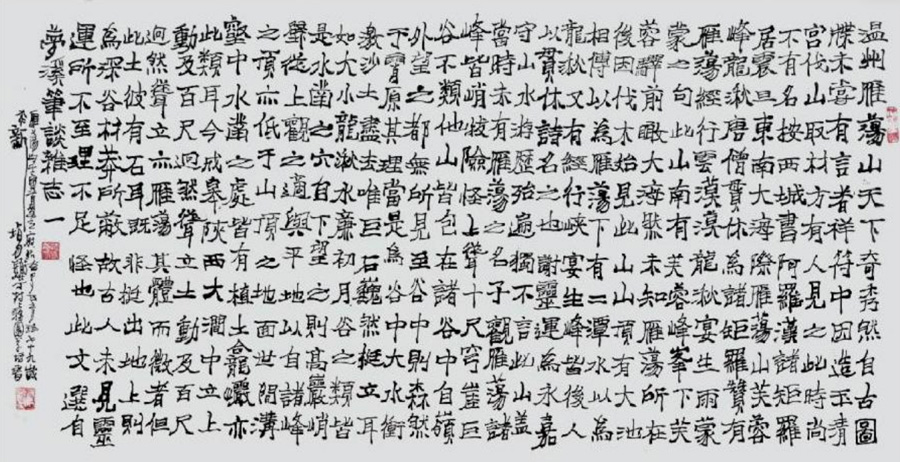 温州雁蕩山天下奇秀然自古圖
牒未嘗有言者祥符中因造玉清
宮伐山取材方有人見之此時尚
不有名按西域書阿羅漢諸矩羅
居震旦東南大海際雁蕩山芙蓉
峰龍湫唐僧貫休為諾矩羅贊有
雁蕩經行雲漠漠龍湫宴生雨蒙
蒙之句此山南有芙蓉峰峯下芙
蓉驛前瞰大海然未知雁蕩所在
後因伐木始見此山山頂有大池
相傳以為雁蕩下有二潭水以為
龍湫又有經行峽宴生峰皆後人
以貫休詩名之也謝靈運為永嘉
守山水游歷殆遍獨不言此山蓋
當時未有雁蕩之名子雁蕩諸
峰皆峭拔險怪上聳十尺穹崖巨
谷不類他山皆包在諸谷中自嶺
外望之都無所見至谷中則森然
于霄原其理當是為谷中大水衝
激沙土盡去唯巨石巍然挺立耳
如大小龍湫水簾初月谷之類皆
是水鑿之穴自下望之則高巖峭
壁從上觀之適與平地以自諸峰
之頂亦低于山頂之地面世間溝
壑中水鑿之處皆有植土龕巖亦
此類耳今成皋陝西大澗中立土
動及百尺迥然聳立土動及百尺
迥然聳立亦雁蕩其體而微者但
此土彼有石耳既非挺出地上則
為深谷林莽所蔽故古人未見靈
運所不至理不足怪也此文選自
夢溪筆談雜志一